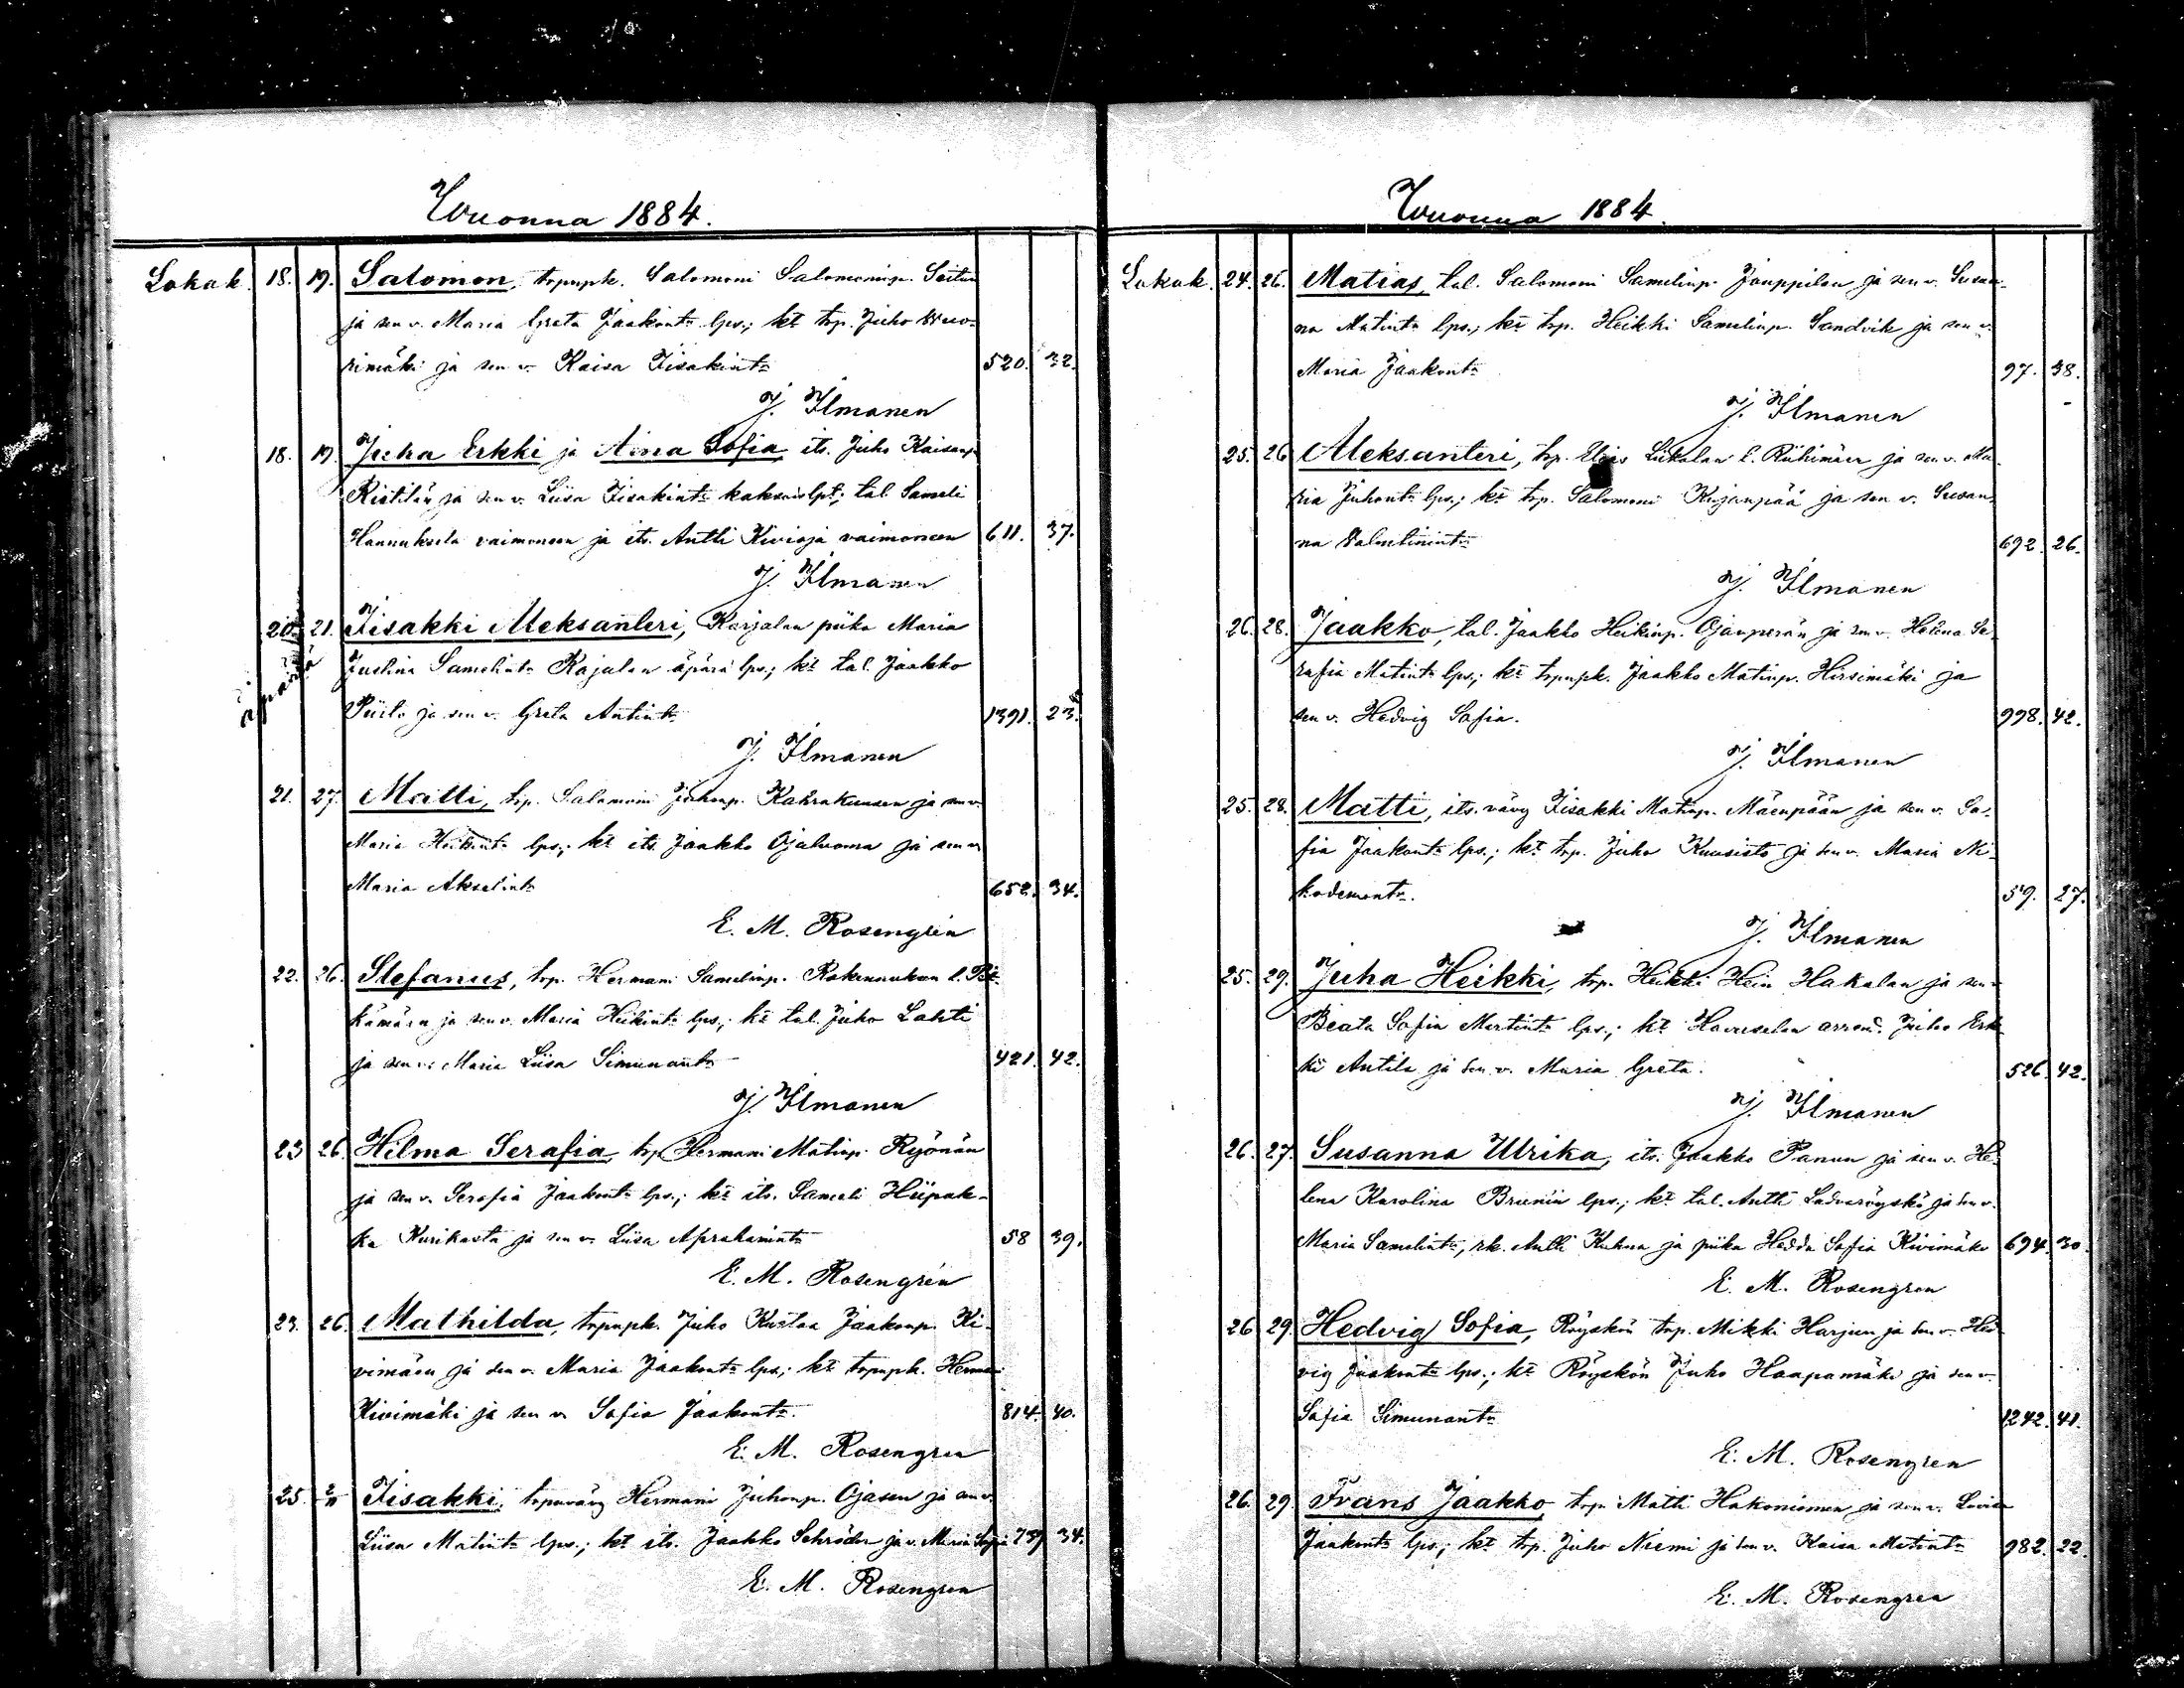 Wuonna 1884.
Lokak. 18. 19. Salomon, trpnpk. Salomoni Salomoninp. Seitun
ja sen v. Maria Greta Jaakontr lps.; kt trp. Juho Wuo-
rimäki ja sen v. Kaisa Iisakintr 520. 32.
J. Ilmanen
18. 19. Juha Erkki ja Aina Sofia, its. Juho Kaisanp.
Ristilän ja sen v. Liisa Iisakintr kaksoislpt; tal. Sameli
Hannuksela vaimoneen ja its. Antti Kivioja vaimoneen 611. 37.
J. Ilmanen
20. 21. Iisakki Aleksanteri, Karjalan piika Maria
äpärä
Justina Samelintr Kajalan äpärä lps.; kt tal. Jaakko
Piisto ja sen v. Greta Antintr 1391. 23.
J. Ilmanen
21. 27. Matti, trp. Salomoni Juhonp. Kahrakuusen ja sen v.
Maria Heikintr lps.; kt its. Jaakko Ojaluoma ja sen v.
Maria Akselintr 652. 34.
E. M. Rosengrén
22. 26. Stefanus, trp. Hermani Samelinp. Rakennuksen l. Pit-
kämäen ja sen v. Maria Heikintr lps.; kt tal. Juho Lahti
ja sen v. Maria Liisa Simunantr 421. 42.
J. Ilmanen
23 26. Hilma Serafia, trp. Hermani Matinp. Ryönän
ja sen v. Serafia Jaakontr lps.; kt its. Sameli Hiipak-
ka Kurikasta ja sen v. Liisa Aprahamintr 58 39.
E. M. Rosengrén
23. 26. Mathilda, trpnpk. Juho Kustaa Jaakonp. Ki-
vimäen ja sen v. Maria Jaakontr lps.; kt trpnpk. Hermani
Kivimäki ja sen v. Sofia Jaakontr. 814. 40.
E. M. Rosengren
25. 2/11 Iisakki, trpnvävy Hermani Juhonp. Ojasen ja sen v.
Liisa Matintr lps.; kt its. Jaakko Schröder ja v. Maria Sofia 739 34.
E. M. Rosengren
Wuonna 1884.
Lokak. 24. 26. Matias, tal. Salomoni Samelinp. Jouppilan ja sen v. Susan-
na Matintr lps.; kt trp. Heikki Samelinp. Sandvik ja sen v.
Maria Jaakontr 97. 38.
J. Ilmanen
25. 26 Aleksanteri, trp. Elias Liikalan l. Riihimäen ja sen v. Ma-
ria Juhontr lps.; kt trp. Salomoni Kujanpää ja sen v. Susan-
na Valentinintr 692. 26.
J. Ilmanen
26. 28. Jaakko, tal. Jaakko Heikinp. Ojanperän ja sen v. Helena Se-
rafia Matintr lps.; kt trpnpk. Jaakko Matinp. Hirsimäki ja
sen v. Hedvig Sofia. 998. 42.
J. Ilmanen
25. 28. Matti, its. vävy Iisakki Matinp. Mäenpään ja sen v. So-
fia Jaakontr lps.; kt trp. Juho Kuusisto ja sen v. Maria Ni-
kodemontr. 59. 27.
J. Ilmanen
25. 29. Juha Heikki, trp. Heikki Hein Hakalan ja sen v.
Beata Sofia Martintr lps.; kt Haveselan arrend. Juho Erk-
ki Antila ja sen v. Maria Greta. 526. 42.
J. Ilmanen
26. 27. Susanna Ulrika, its. Jaakko Panun ja sen v. He-
lena Karolina Brunin lps.; kt tal. Antti Ladvaröyskö ja sen v.
Maria Samelintr, rk. Antti Kuhna ja piika Hedda Sofia Kivimäki 694. 30.
E. M. Rosengren
26 29. Hedvig Sofia, Röyskön trp. Mikki Harjun ja sen v. Hed-
vig Jaakontr lps.; kt Röyskön Juho Haapamäki ja sen v.
Sofia Simunantr 1242. 41.
E. M. Rosengren
26. 29. Frans Jaakko, trp. Matti Hakoniemen ja sen v. Loviisa
Jaakontr lps.; kt trp. Juho Niemi ja sen v. Kaisa Matintr 982. 22.
E. M. Rosengren